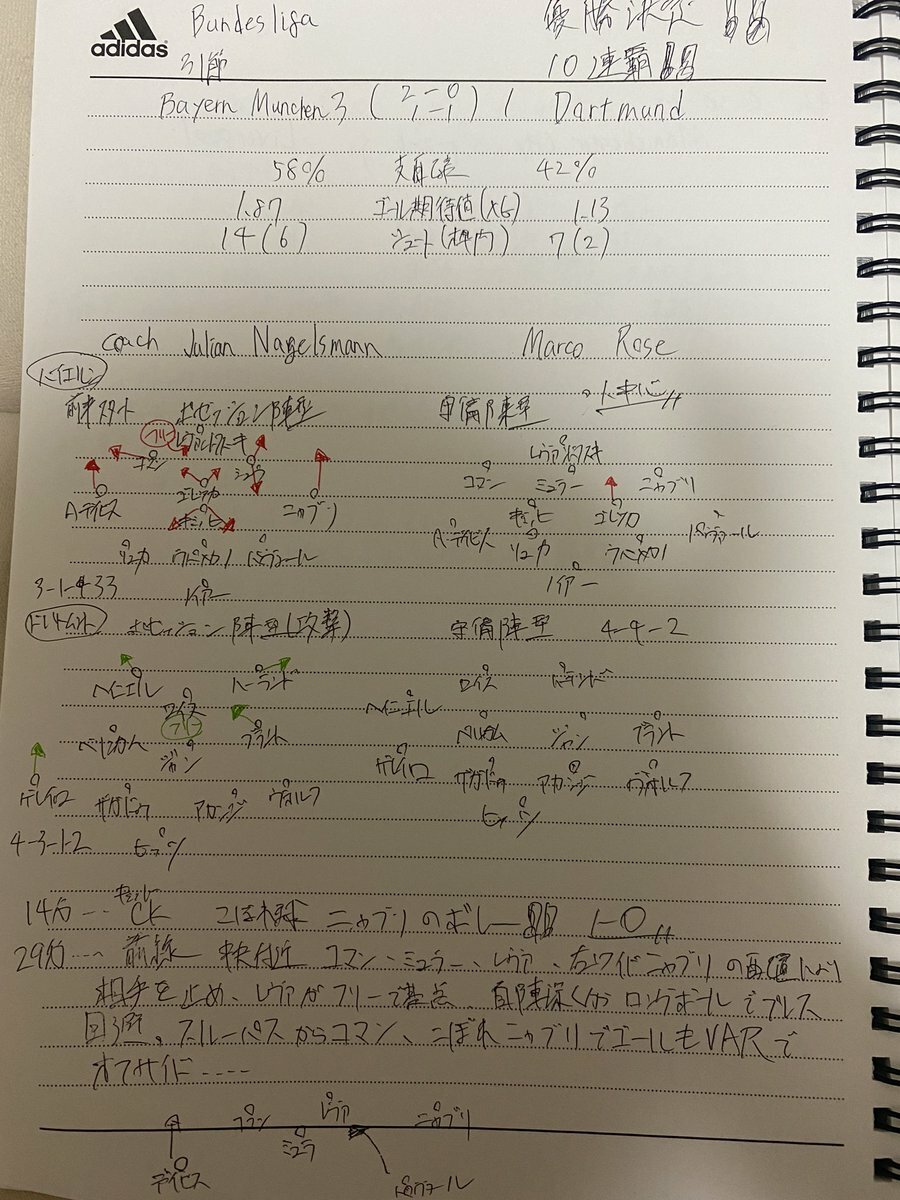 adidas
Bundesliga 優勝決定
31節 10連覇
Bayern Munchen 3 ( 2-0 1-1 ) 1 Dortmund
58% 支配率 42%
1.87 ゴール期待値(xG) 1.13
14(6) シュート(枠内) 7(2)
coach Julian Nagelsmann Marco Rose
バイエルン
前半スタート ポゼッション陣型 守備陣型 人中心
フリー レヴァンドフスキ レヴァンドフスキ
コマン ミュラー コマン ミュラー ニャブリ
A・デイビス ゴレツカ ニャブリ キミッヒ ゴレツカ
キミッヒ A・デイビス パヴァール
リュカ ウパメカノ パヴァール リュカ ウパメカノ
3-1-4-3 ノイアー ノイアー
ドルトムント ポゼッション陣型(攻撃) 守備陣型 4-4-2
ヘイニエル ハーランド ロイス ハーランド
ロイス ヘイニエル
フリー
ベリンガム ブラント ベリンガム ジャン ブラント
ジャン
ゲレイロ ザガドゥ アカンジ ヴォルフ ゲレイロ ザガドゥ アカンジ ヴォルフ
ヒッツ
4-3-1-2 ヒッツ
キミッヒ
14分… CK こぼれ球 ニャブリのボレー 1-0
29分…. 前線 中央付近 コマン、ミュラー、レヴァ、右ワイドニャブリの配置により
相手を止め、レヴァがフリーで基点、自陣深くからロングボールでプレス
回避。スルーパスからコマン、こぼれニャブリでゴールもVARで
オフサイド….
コマン レヴァ ニャブリ
ミュラ
デイビス パヴァール